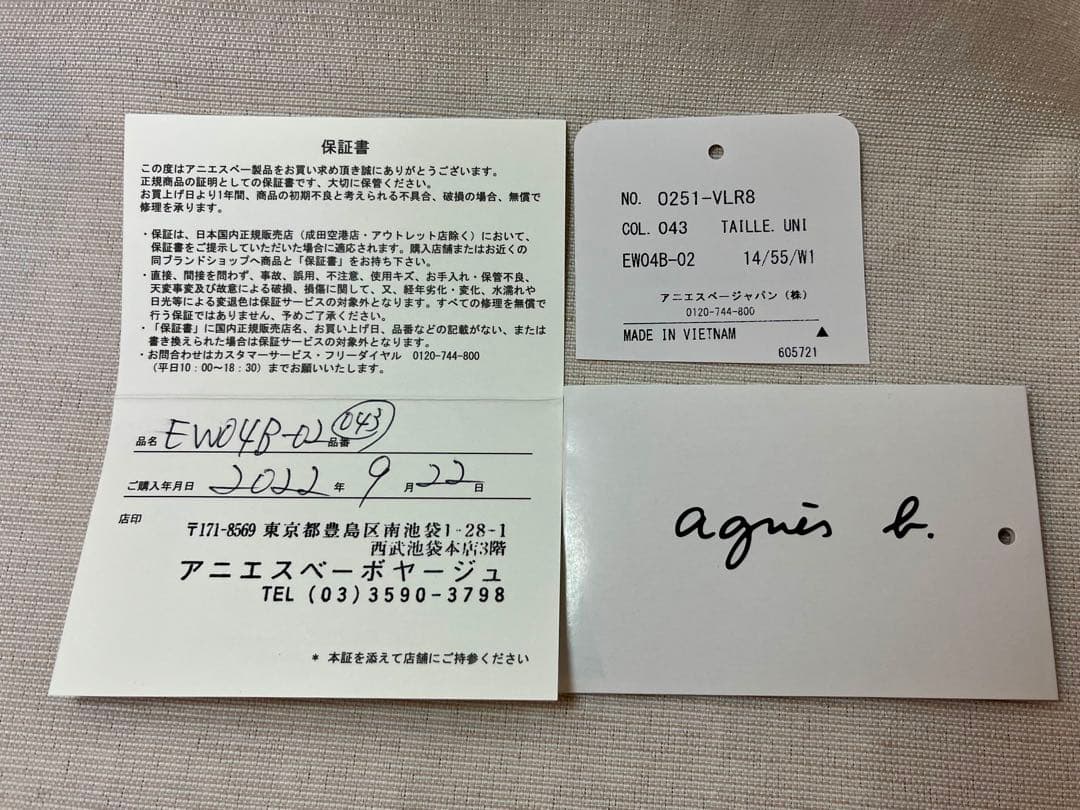 保証書
この度はアニエスベー製品をお買い求め頂き誠にありがとうございます。
正規商品の証明としての保証書です、大切に保管ください。
お買上げ日より1年間、商品の初期不良と考えられる不具合、破損の場合、無償で
修理を承ります。
・保証は、日本国内正規販売店（成田空港店・アウトレット店除く）において、
保証書をご提示していただいた場合に適応されます。購入店舗またはお近くの
同ブランドショップへ商品と「保証書」をお持ち下さい。
・直接、間接を問わず、事故、誤用、不注意、使用キズ、お手入れ・保管不良、
天変事変及び故意による破損、損傷に関して、又、経年劣化・変化、水濡れや
日光等による変退色は保証サービスの対象外となります。すべての修理を無償で
行う保証ではありません、予めご了承ください。
・「保証書」に国内正規販売店名、お買い上げ日、品番などの記載がない、または
書き換えられた場合は保証サービスの対象外となります。
・お問合わせはカスタマーサービス・フリーダイヤル 0120-744-800
（平日10：00〜18：30）までお願いいたします。
品名 EW04B-02 品番 043
ご購入年月日 2022 年 9 月 22 日
店印
〒171-8569 東京都豊島区南池袋1-28-1
西武池袋本店3階
アニエスベーボヤージュ
TEL (03)3590-3798
* 本証を添えて店舗にご持参ください
NO. 0251-VLR8
COL. 043 TAILLE. UNI
EW04B-02 14/55/W1
アニエスベージャパン（株）
0120-744-800
MADE IN VIETNAM ▲
605721
agnès b.